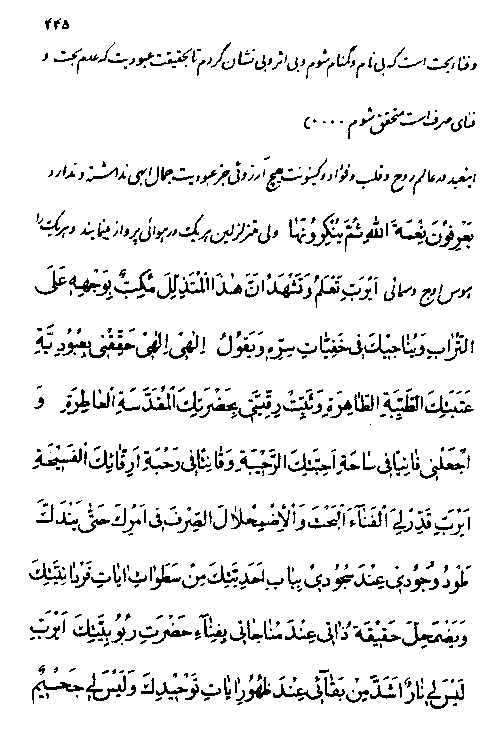 ۴۴۵
و فنا بحت است که بی نام و گمنام شوم و بی اثر و بی نشان گردم تا بحقیقت عبودیت که عدم بحت و
فنای صرف است متحقق شوم ....)
اینعبد در عالم روح و قلب و فؤاد و کینونت هیچ آرزوئی جز عبودیت جمال ابهی نداشته و ندارد
یَعرِفُونَ نِعْمَةَ اللهِ ثُمَّ یُنْکِرُونَهٰا ولی متزلزلین هر یک در هوائی پرواز مینمایند و هریک را
هوس اوج و سمائی اَیْرَبِّ تَعْلَمُ وَتَشْهَدُ اَنَّ هٰذَا الْمُتَذَلِّلَ مُکِبٌّ بِوَجْهِهِ عَلَی
التُّرٰابِ وَیُنٰاجیکَ فی خَفِیّٰاتِ سِرِّهِ وَیَقُولُ اِلٰهی اِلٰهی حَقِّقْنی بِعُبُودِیَّةِ
عَتَبَتِکَ الطَّیِّبَةِ الطّٰاهِرَةِ وَثَبِّتْ رِقِّیَّتی بِحَضْرَتِکَ الْمُقَدَّسَةِ الْعٰاطِرَةِ وَ
اجْعَلْنی فٰانِیاً فی سٰاحَةِ اَحِبَّتِکَ الرَّحیبَةِ وَفٰانِیاً فی رَحْبَةِ اَرِقّٰائِکَ الْفَسیحَةِ
اَیْرَبِّ قَدِّرْ لِیَ الْفَنٰاءَ الْبَحْتَ وَالْاِضْمِحْلٰالَ الصِّرْفَ فی اَمْرِکَ حَتّٰی یَنْدَکَّ
طَوْدُ وُجُودی عِنْدَ سُجُودی بِبٰابِ اَحَدِیَّتِکَ مِنْ سَطَوٰاتِ اٰیٰاتِ فَرْدٰانِیَّتِکَ
وَیَضْمَحِلَّ حَقیقَةُ ذٰاتی عِنْدَ مُنٰاجٰاتی بِفِنٰاءِ حَضْرَتِ رُبُوبِیَّتِکَ اَیْرَبِّ
لَیْسَ لی نٰارٌ اَشَدَّ مِنْ بَقٰائی عِنْدَ ظُهُورِ اٰیٰاتِ تَوْحیدِکَ وَلَیْسَ لی جَحیمٌ